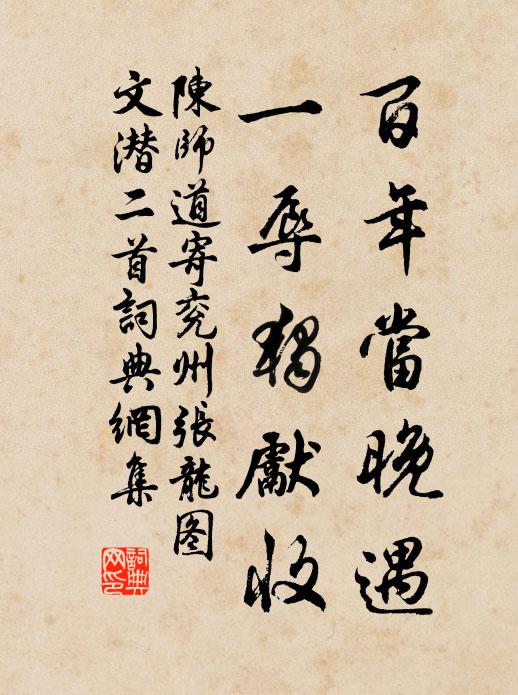 百年當晚遇
一辱獨獻收
陳師道寄兖州張龍图
文潜二首詞典網集
詞典网印